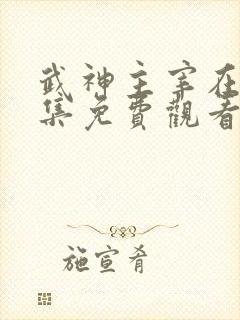 武神主宰在
集免費觀看
施宣肴